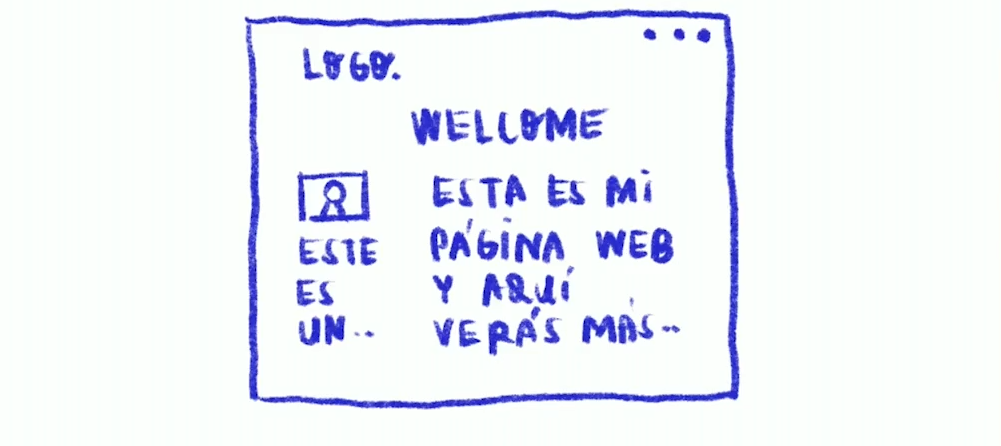 LOGO.
WELCOME
ESTE
ES
UN..
ESTA ES MI
PÁGINA WEB
Y AQUÍ
VERÁS MÁS..